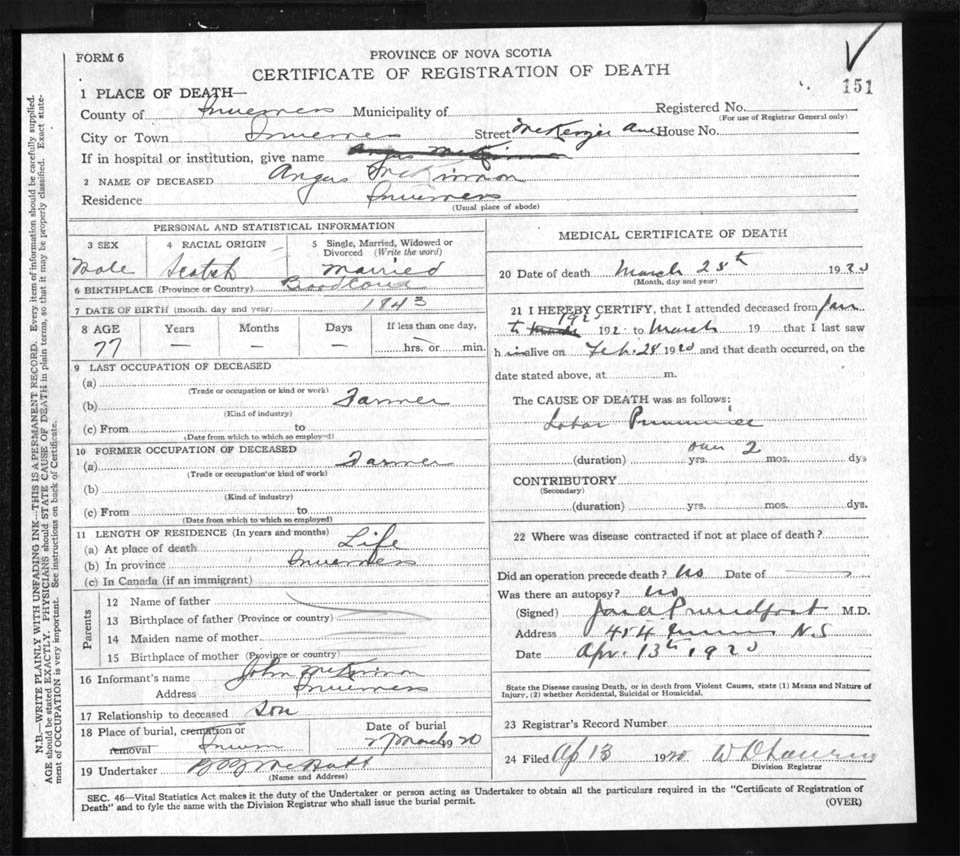 FORM 6
PROVINCE OF NOVA SCOTIA
CERTIFICATE OF REGISTRATION OF DEATH
151
1 PLACE OF DEATH—
County of Inverness Municipality of Registered No.
(For use of Registrar General only)
City or Town Inverness Street McKenzie Ave House No.
If in hospital or institution, give name Angus McKinnon
2 NAME OF DECEASED Angus McKinnon
Residence Inverness
(Usual place of abode)
PERSONAL AND STATISTICAL INFORMATION
3 SEX 4 RACIAL ORIGIN 5 Single, Married, Widowed or
Divorced (Write the word)
Male Scotch Married
6 BIRTHPLACE (Province or Country)
7 DATE OF BIRTH (month, day and year) 1843
8 AGE Years Months Days If less than one day,
77 — — — hrs. or min.
9 LAST OCCUPATION OF DECEASED
(a)
(Trade or occupation or kind or work)
(b) Farmer
(Kind of industry)
(c) From to
(Date from which to which so employed)
10 FORMER OCCUPATION OF DECEASED
(a) Farmer
(Trade or occupation or kind of work)
(b)
(Kind of industry)
(c) From to
(Date from which to which so employed)
11 LENGTH OF RESIDENCE (In years and months)
(a) At place of death Life
(b) In province Inverness
(c) In Canada (if an immigrant)
Parents
12 Name of father
13 Birthplace of father (Province or country)
14 Maiden name of mother
15 Birthplace of mother (Province or country)
16 Informant's name John McKinnon
Address Inverness
17 Relationship to deceased Son
18 Place of burial, cremation or Date of burial
removal March 20
19 Undertaker
(Name and Address)
MEDICAL CERTIFICATE OF DEATH
20 Date of death March 28th 1920
(Month, day and year)
21 I HEREBY CERTIFY, that I attended deceased from Jan
1920
to March 192 to March 19 that I last saw
h im alive on Feb. 28 1920 and that death occurred, on the
date stated above, at m.
The CAUSE OF DEATH was as follows:
Lobar
2
(duration) yrs. mos. dys
CONTRIBUTORY
(Secondary)
(duration) yrs. mos. dys.
22 Where was disease contracted if not at place of death?
Did an operation precede death? No Date of
Was there an autopsy? No
(Signed) M.D.
Address N.S
Date Apr. 13th 1920
State the Disease causing Death, or in death from Violent Causes, state (1) Means and Nature of
Injury, (2) whether Accidental, Suicidal or Homicidal.
23 Registrar's Record Number
24 Filed Ap 13 1920 W D
Division Registrar
SEC. 46—Vital Statistics Act makes it the duty of the Undertaker or person acting as Undertaker to obtain all the particulars required in the "Certificate of Registration of
Death" and to fyle the same with the Division Registrar who shall issue the burial permit.
(OVER)
N.B.—WRITE PLAINLY WITH UNFADING INK—THIS IS A PERMANENT RECORD. Every item of information should be carefully supplied.
AGE should be stated EXACTLY. PHYSICIANS should STATE CAUSE OF DEATH in plain terms, so that it may be properly classified. Exact state-
ment of OCCUPATION is very important. See instructions on back of Certificate.